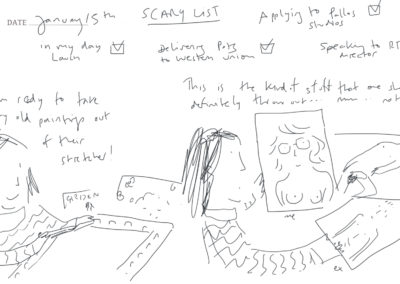 DATE January 15th
SCARY LIST
Applying to
studios
in my day
Delivering Pots
to Western Union
Speaking to RT
This is the kind of stuff that one
definitely throw out... mmm... not
ready to take
old paintings out
of their
stretcher!
me
ex